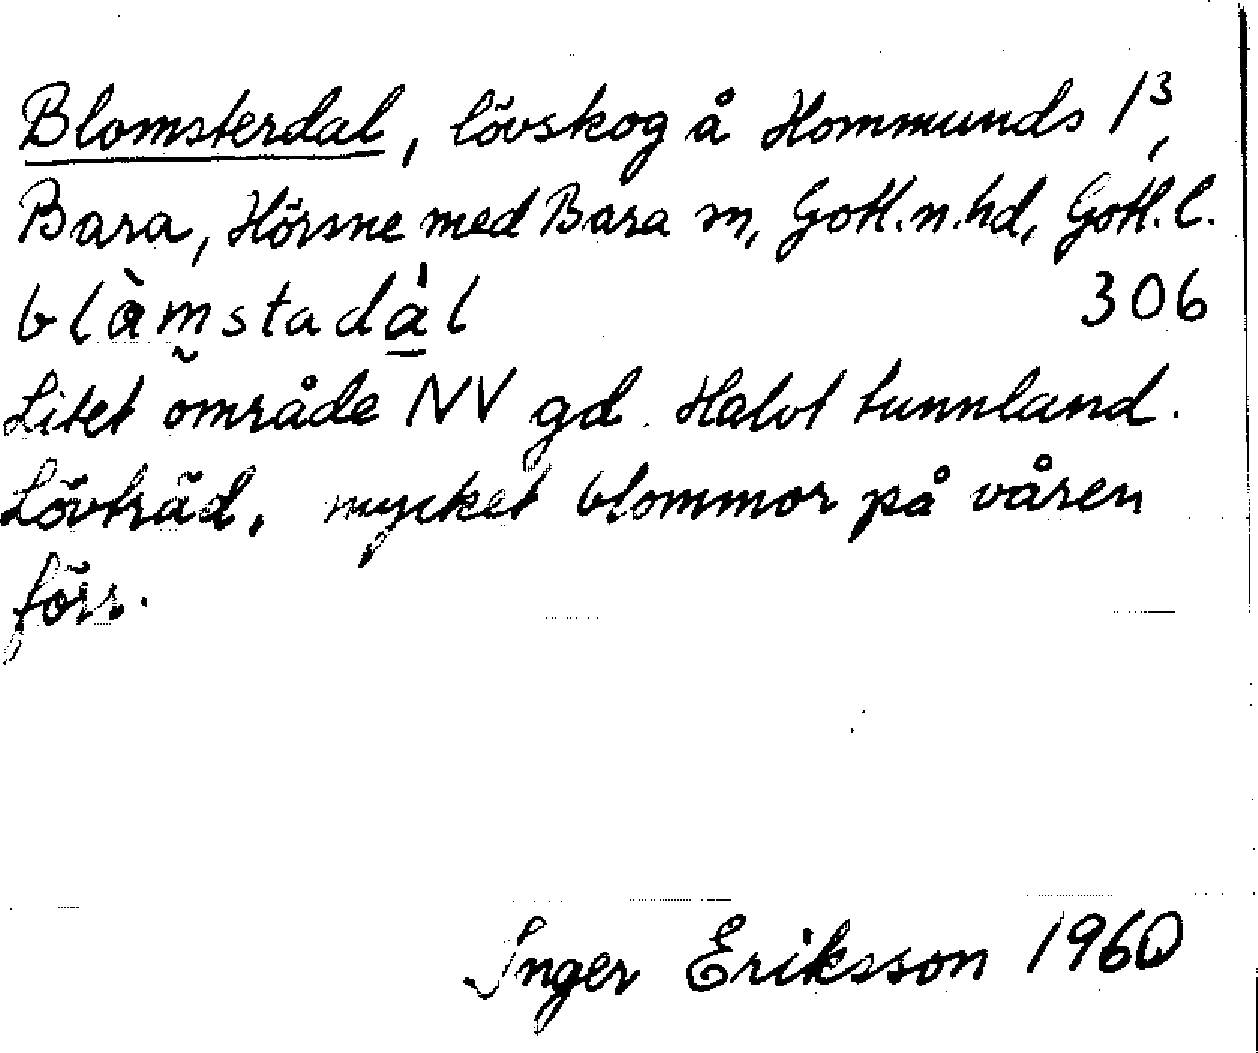 Blomsterdal, lövskog å Hommunds 1³,
Bara, Hörsne med Bara sn, Gotl. n. hd, Gotl. l.
blàmstadál 306
Litet område NV gd. Halvt tunnland.
Lövträd, mycket blommor på våren
förr.
Inger Eriksson 1960